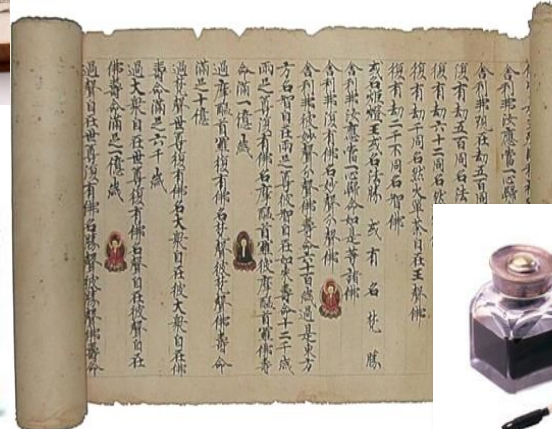 舍利弗汝應當一心歸
舍利弗現在劫五百同
復有劫五百同名法
復有劫六十二同名然
復有劫千同名然火單荼自在王聲佛
復有劫二千不同名智佛
或名燈王或名法勝 或有名梵勝
舍利弗汝應當一心歸命如是等諸佛
舍利弗復有佛名妙聲分聲佛
舍利弗彼妙聲分聲佛壽命六十百歲過是東方
方名智自在兩足尊彼智自在如來壽命十二千歲
兩足尊復有佛名摩醯首羅彼摩醯首羅佛壽
命滿一億歲
過摩醯首羅復有佛名梵聲彼梵聲佛壽命
滿足十億
過梵聲世尊復有佛名大眾自在彼大眾自在佛
壽命滿足六千歲
過大眾自在世尊復有佛名聲自在彼聲自在
佛壽命滿足一億歲
過聲自在世尊復有佛名勝聲彼勝聲佛壽命